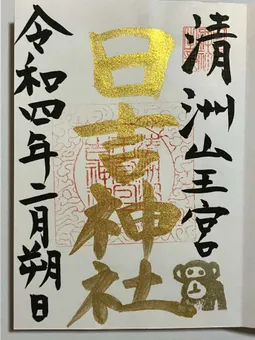 清洲山王宮
日吉神社
令和四年二月朔日